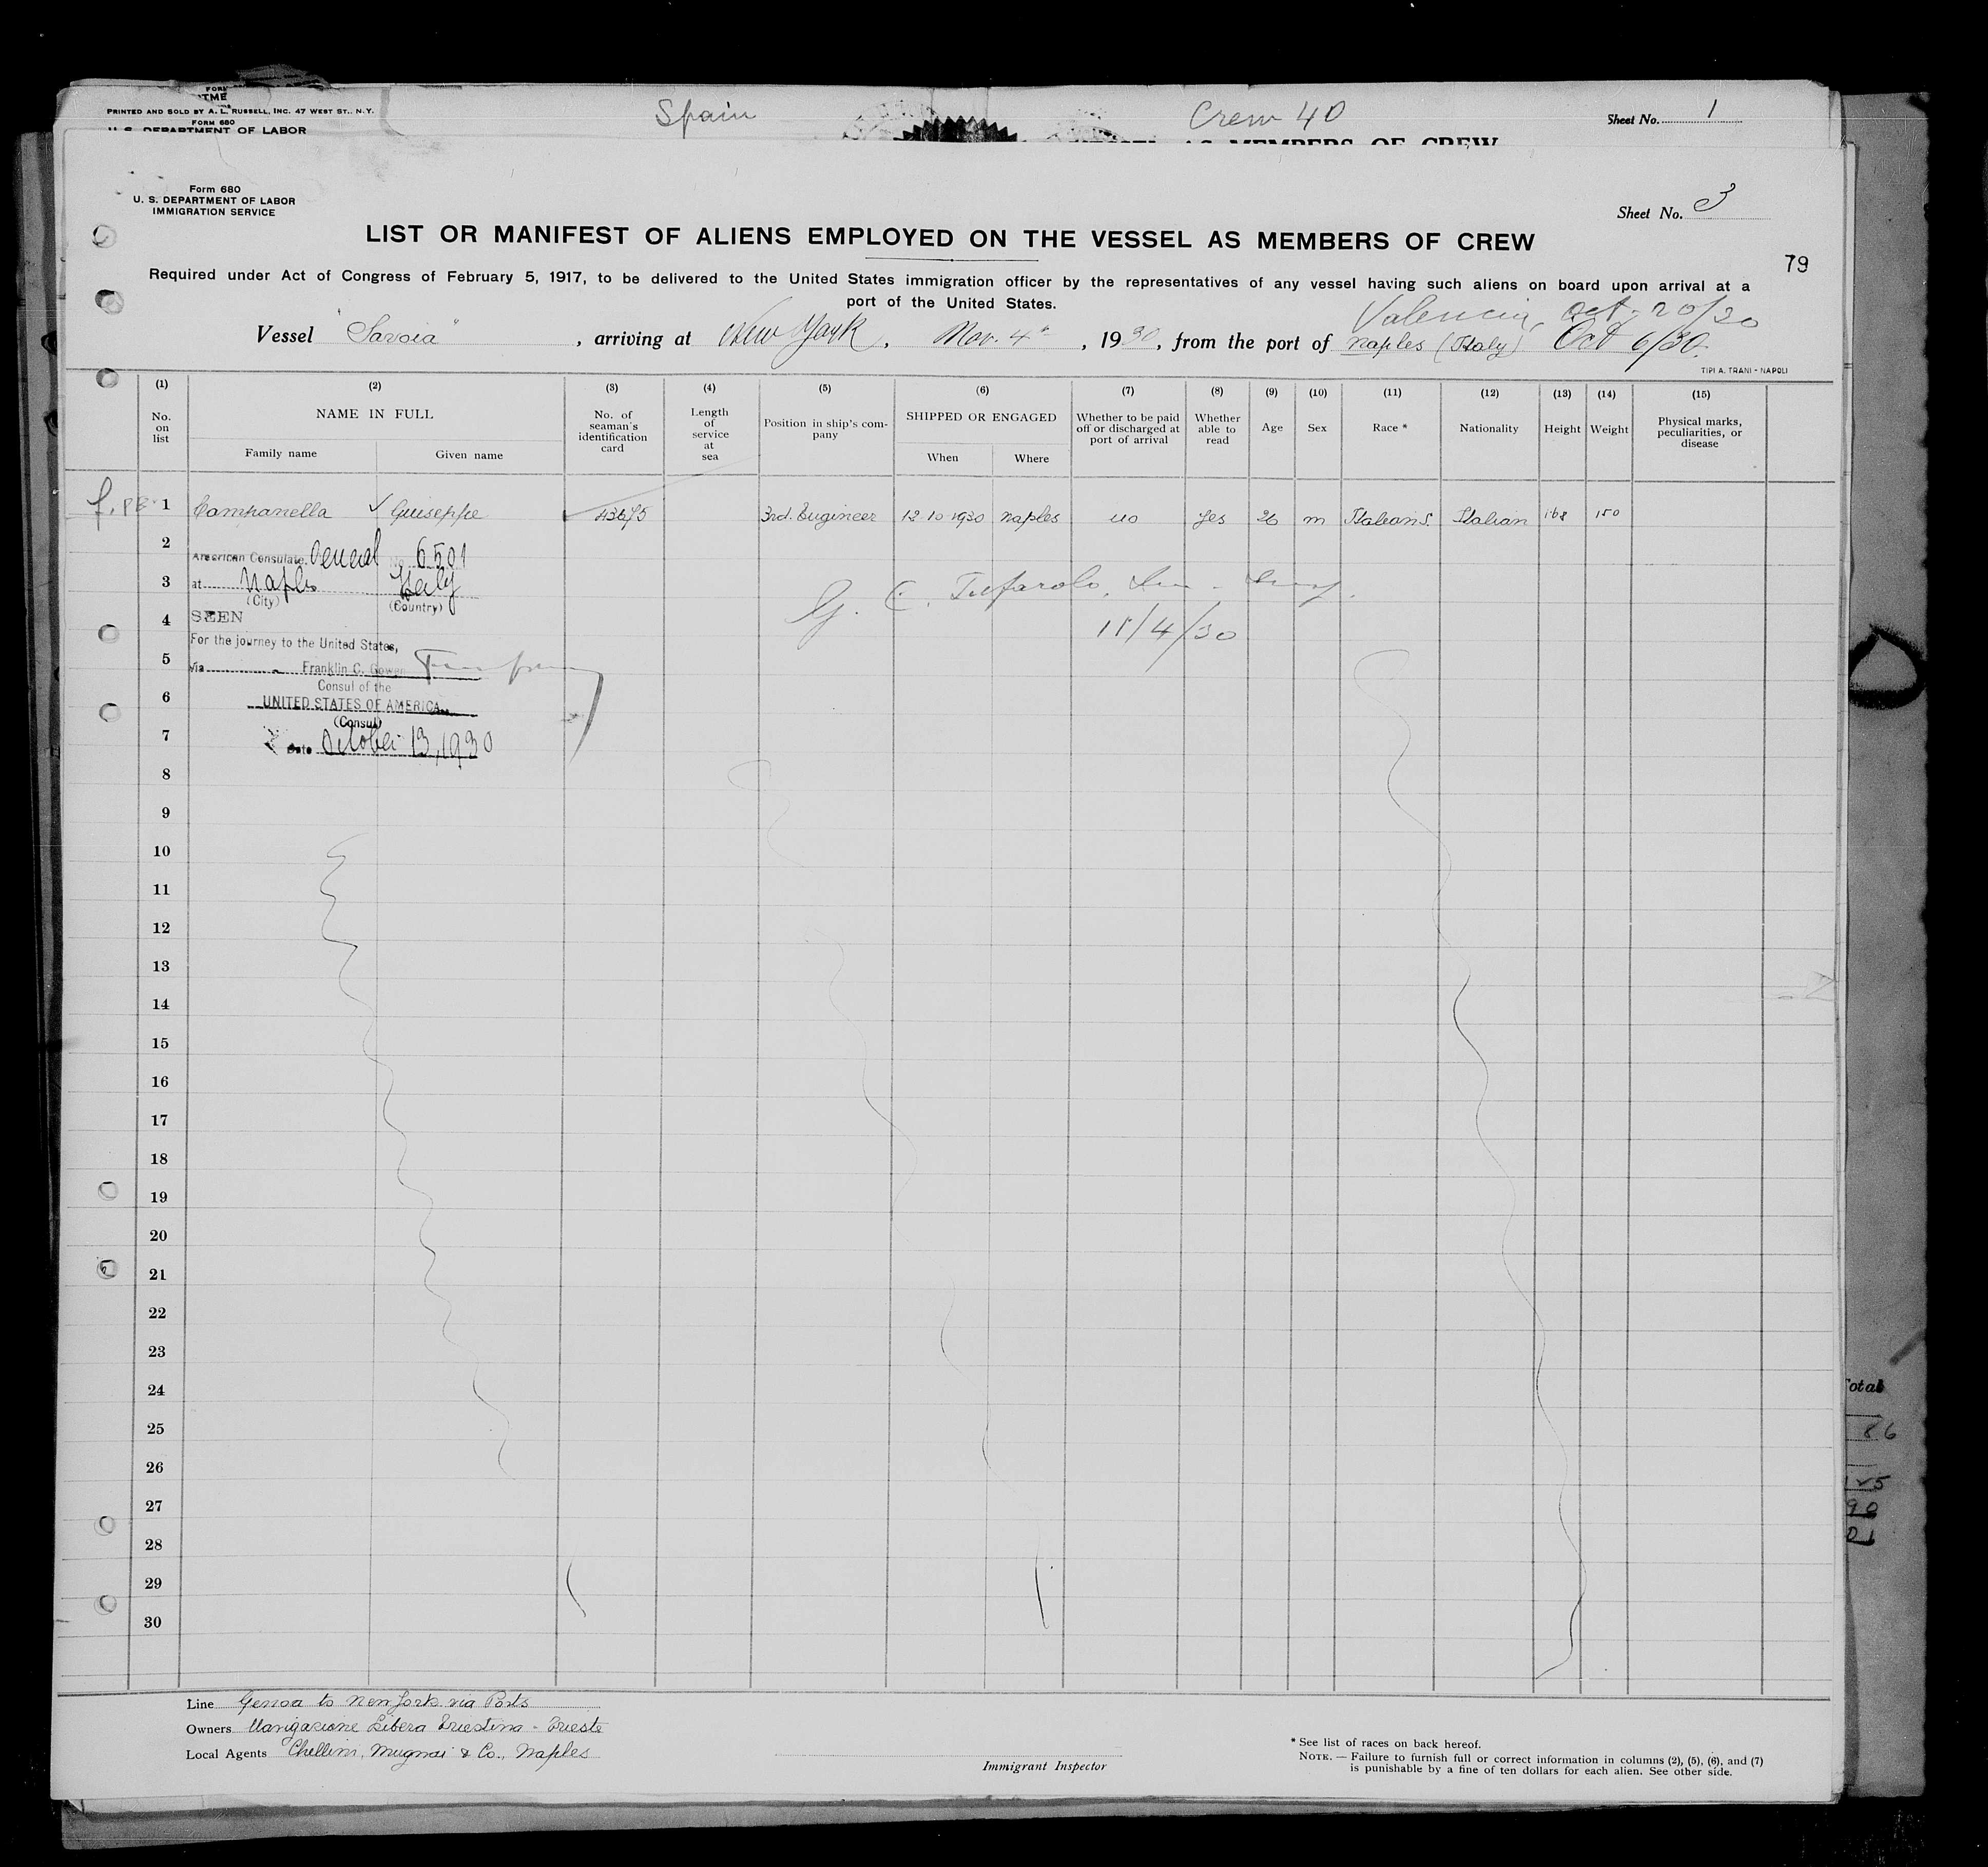 FORM
PRINTED AND SOLD BY A. L. RUSSELL, INC. 47 WEST ST., N.Y.
FORM 680
U. S. DEPARTMENT OF LABOR
Spain
Crew 40
Sheet No. 1
AS MEMBERS OF CREW
Form 680
U. S. DEPARTMENT OF LABOR
IMMIGRATION SERVICE
Sheet No. 3
LIST OR MANIFEST OF ALIENS EMPLOYED ON THE VESSEL AS MEMBERS OF CREW
79
Required under Act of Congress of February 5, 1917, to be delivered to the United States immigration officer by the representatives of any vessel having such aliens on board upon arrival at a
port of the United States.
Valencia, Oct. 20/30
Vessel "Savoia", arriving at New York, Nov. 4th, 1930, from the port of Naples (Italy) Oct 6/30.
TIPI A. TRANI - NAPOLI
(1) (2) (3) (4) (5) (6) (7) (8) (9) (10) (11) (12) (13) (14) (15)
No. on list
NAME IN FULL
Family name
Given name
No. of seaman's identification card
Length of service at sea
Position in ship's company
SHIPPED OR ENGAGED
When
Where
Whether to be paid off or discharged at port of arrival
Whether able to read
Age
Sex
Race *
Nationality
Height
Weight
Physical marks, peculiarities, or disease
1 Campanella Guiseppe 43675 3rd. Engineer 12 10 1930 Naples no yes 26 m Italian S. Italian 168 150
2
American Consulate General No. 6501
3
at Naples Italy
(City) (Country)
4
SEEN
G. C. Tufarolo
11/4/30
For the journey to the United States,
5
Via Franklin C. Gowen
Consul of the
6
UNITED STATES OF AMERICA
(Consul)
7
Date October 13, 1930
8
9
10
11
12
13
14
15
16
17
18
19
20
21
22
23
24
25
26
27
28
29
30
Total
86
Line Genoa to New York via Ports
Owners Navigazione Libera Triestina - Trieste
Local Agents Chellini, Mugnai & Co., Naples
Immigrant Inspector
* See list of races on back hereof.
NOTE. — Failure to furnish full or correct information in columns (2), (5), (6), and (7)
is punishable by a fine of ten dollars for each alien. See other side.